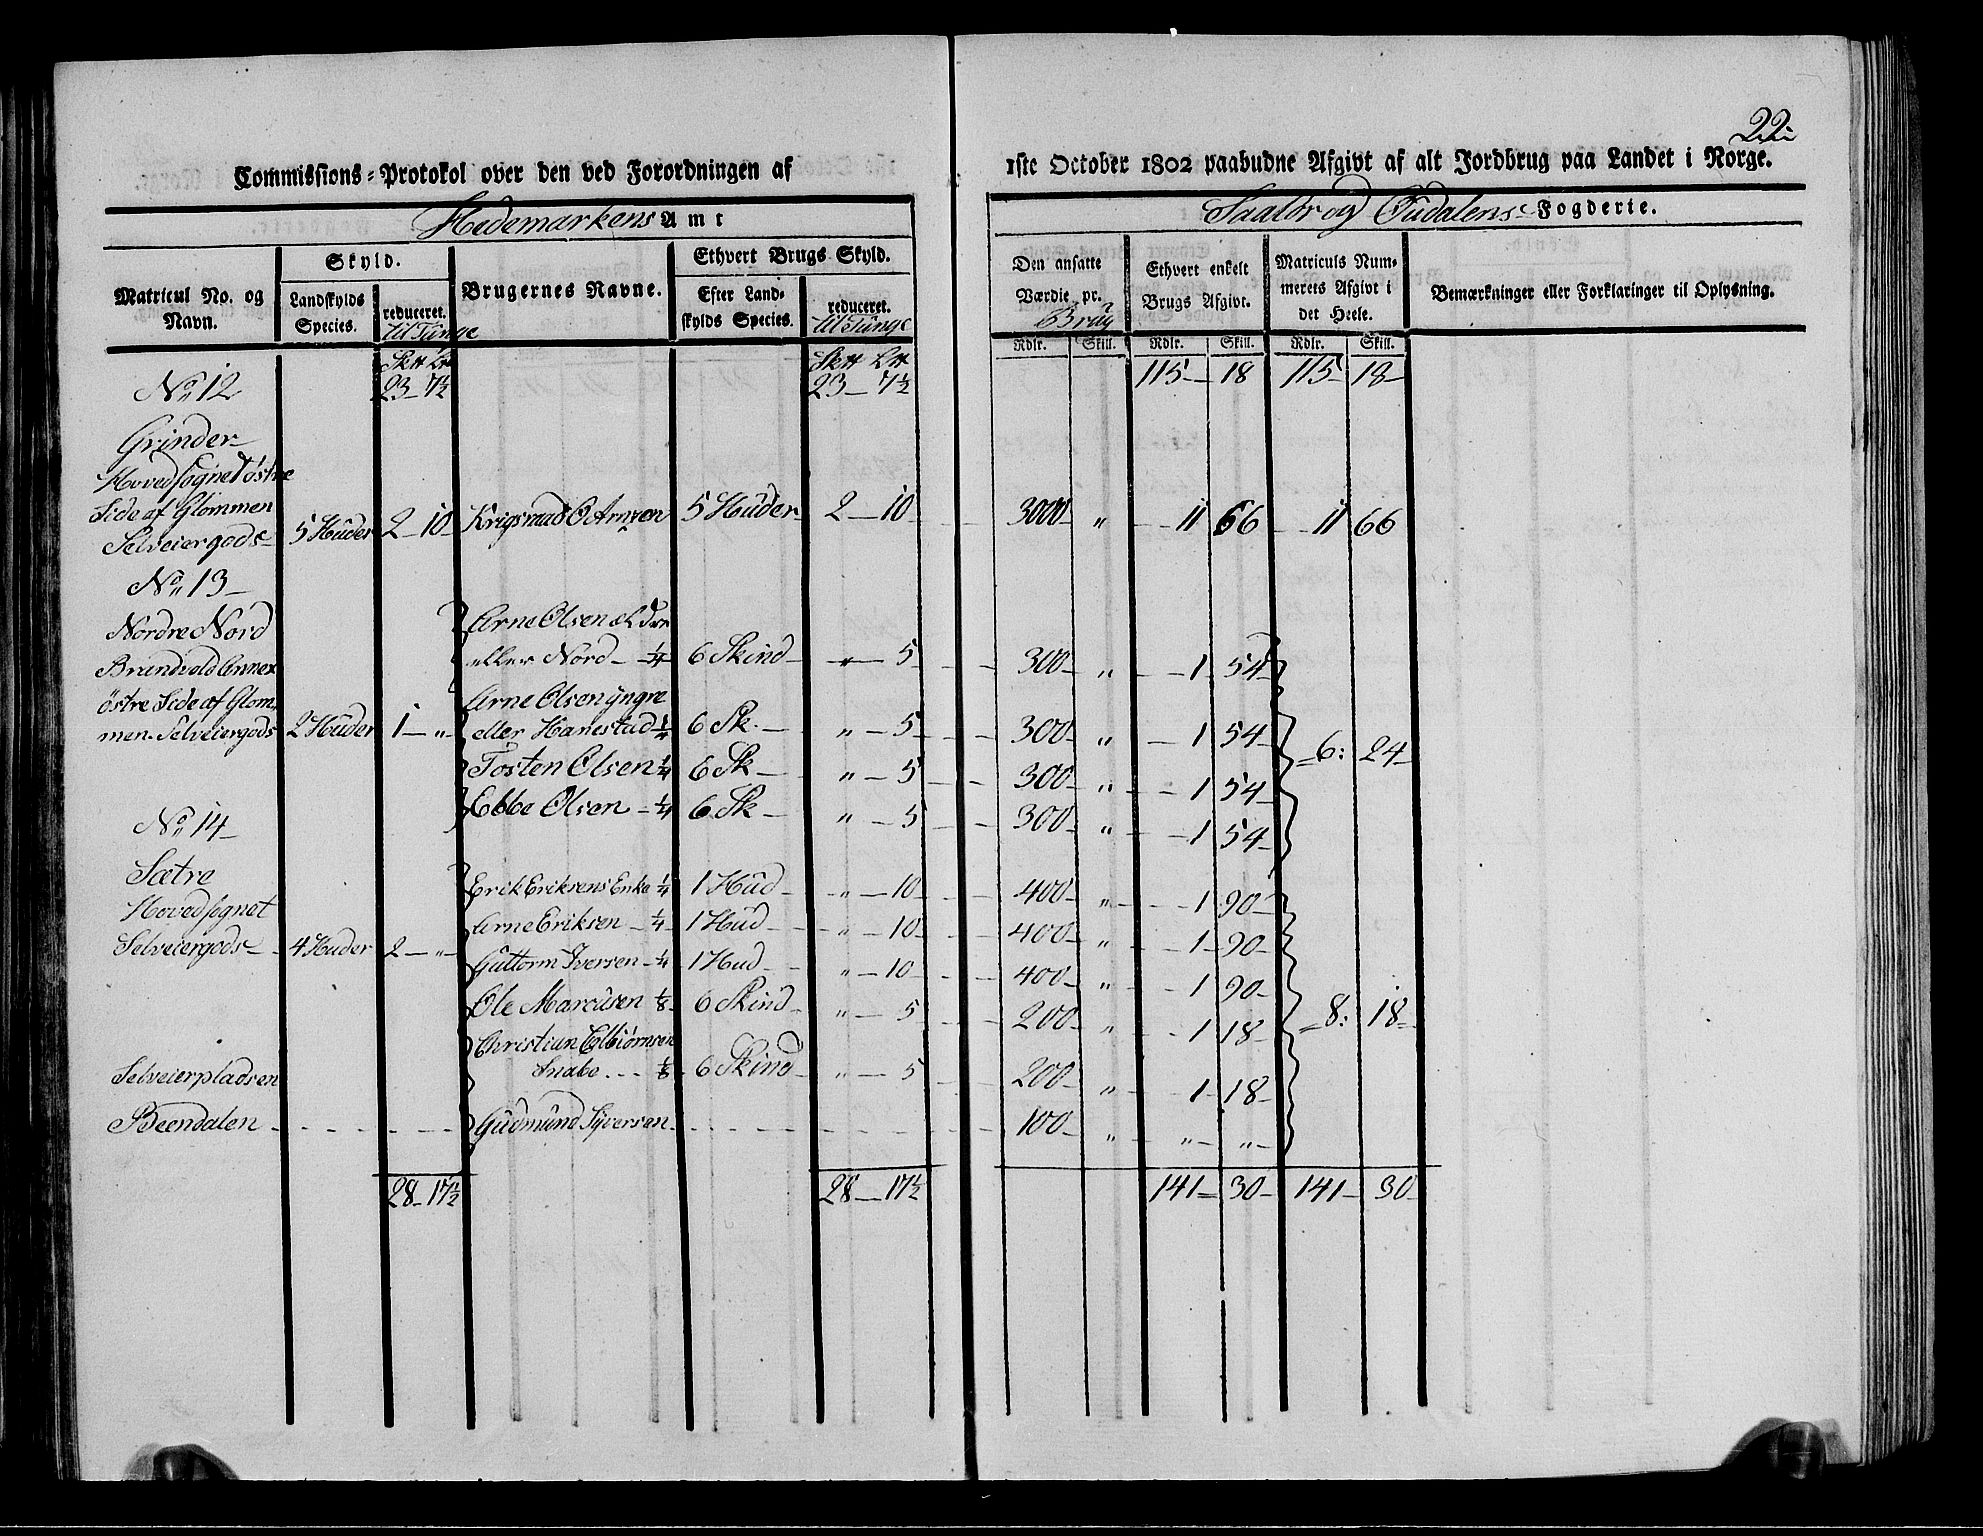 22
Commissions-Protokol over den ved Forordningen af
1ste October 1802 paabudne Afgivt af alt Jordbrug paa Landet i Norge.
Hedemarkens Amt
Saalør og Oudalens Fogderie.
Matricul No. og Navn.
Skyld.
Landskylds Species.
reduceret. til Tunge
Brugernes Navne.
Ethvert Brugs Skyld.
Efter Landskylds Species.
reduceret. til Tunge
Den ansatte Værdie pr. Brug
Ethvert enkelt Brugs Afgivt.
Matriculs Nummerets Afgivt i det Heele.
Bemærkninger eller Forklaringer til Oplysning.
Rdlr. Skill. Rdlr. Skill. Rdlr. Skill.
No 12 23 - 7½ 23 - 7½ 115 - 18 115 - 18
Grinder
Hovedsognet østre
Side af Glommen
Selveiergods 5 Huder 2 - 10 Krigsraad O Arnzen 5 Huder 2 - 10 3000 " 11 66 11 66
No 13
Nordre Nord Arne Olsen ældre
eller Nord ¼ 6 Skind " - 5 300 " 1 54
Brandvold Annex
østre Side af Glom- Arne Olsen yngre
men. Selveiergods 2 Huder 1 - " eller Hanestad ¼ 6 Sk " - 5 300 " 1 54 6: 24
Tosten Olsen ¼ 6 Sk " - 5 300 " 1 54
Ebbe Olsen ¼ 6 Sk " - 5 300 " 1 54
No 14
Sætre Erik Eriksens Enke ¼ 1 Hud " - 10 400 " 1 90
Hovedsognet Arne Eriksen ¼ 1 Hud " - 10 400 " 1 90
Selveiergods 4 Huder 2 - " Guttorm Iversen ¼ 1 Hud " - 10 400 " 1 90
Ole Marcusen ⅛ 6 Skind " - 5 200 " 1 18 8: 18
Christian Elbiørnsen
Snabe ⅛ 6 Skind " - 5 200 " 1 18
Selveierpladsen
Beendalen Gudmund Syversen 100 " " "
28 - 17½ 28 - 17½ 141 - 30 141 - 30